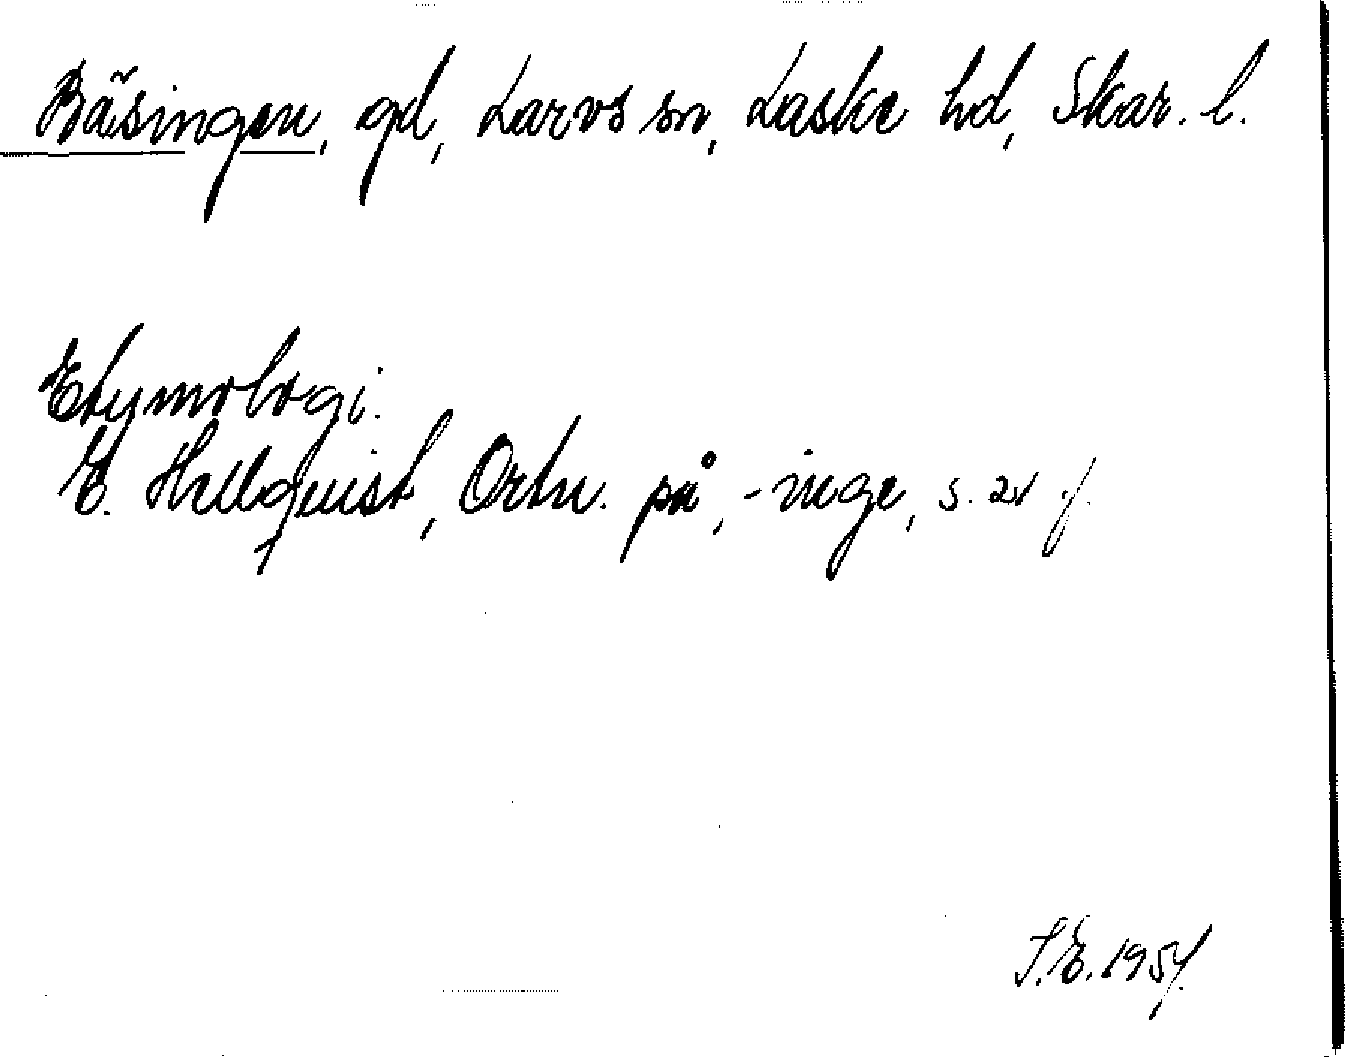 Bäsingen, gd, Larvs sn, Laske hd, Skar. l.
Etymologi.
E. Hellquist, Ortn. på -inge, s. 21 f.
S.E. 1954.